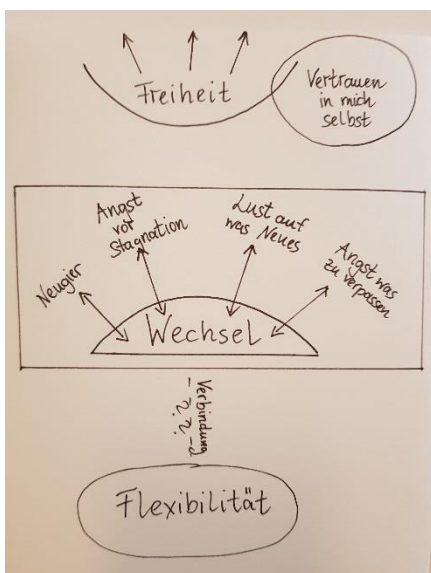 Freiheit
Vertrauen
in mich
selbst
Neugier
Angst
vor
Stagnation
Lust auf
was Neues
Angst was
zu verpassen
Wechsel
Verbindung
Flexibilität